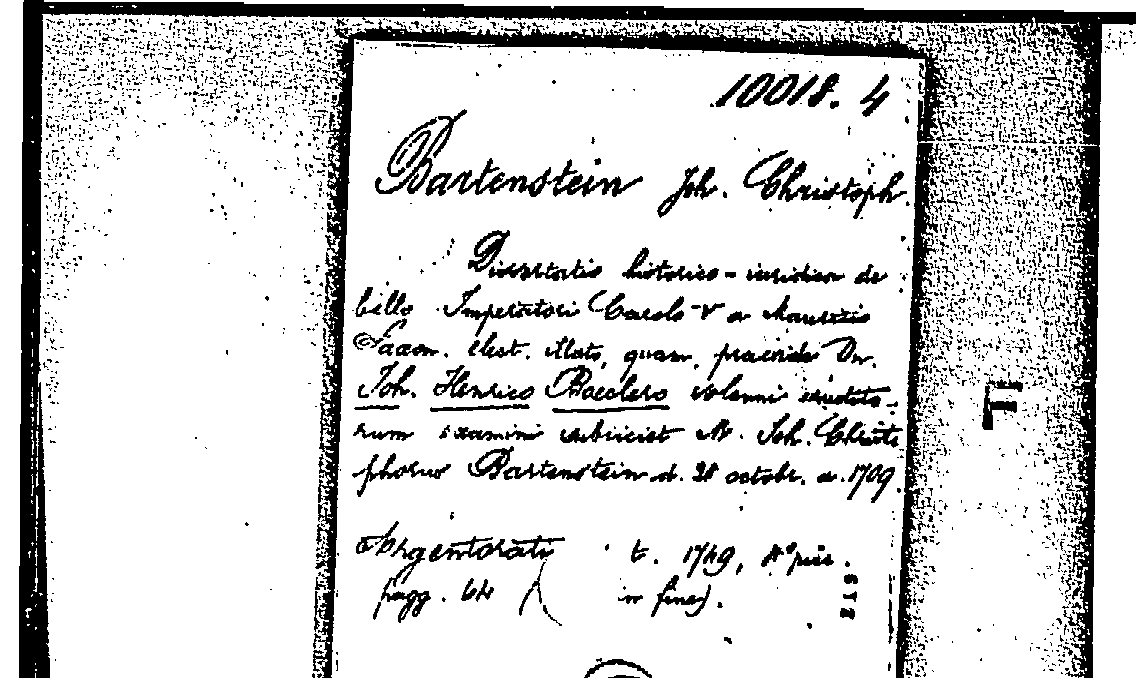 10018. 4
Bartenstein Joh. Christoph.
Dissertatio historico-iuridica de
bello Imperatori Carolo V a Mauritio
Saxon. elect. illato, quam, praeside Dn.
Joh. Henrico Boeclero solenni erudito-
rum examini subiiciet M. Joh. Christo
phorus Bartenstein d. 28 octobr. a. 1709.
Argentorati t. 1709, 4°
pagg. in fine).